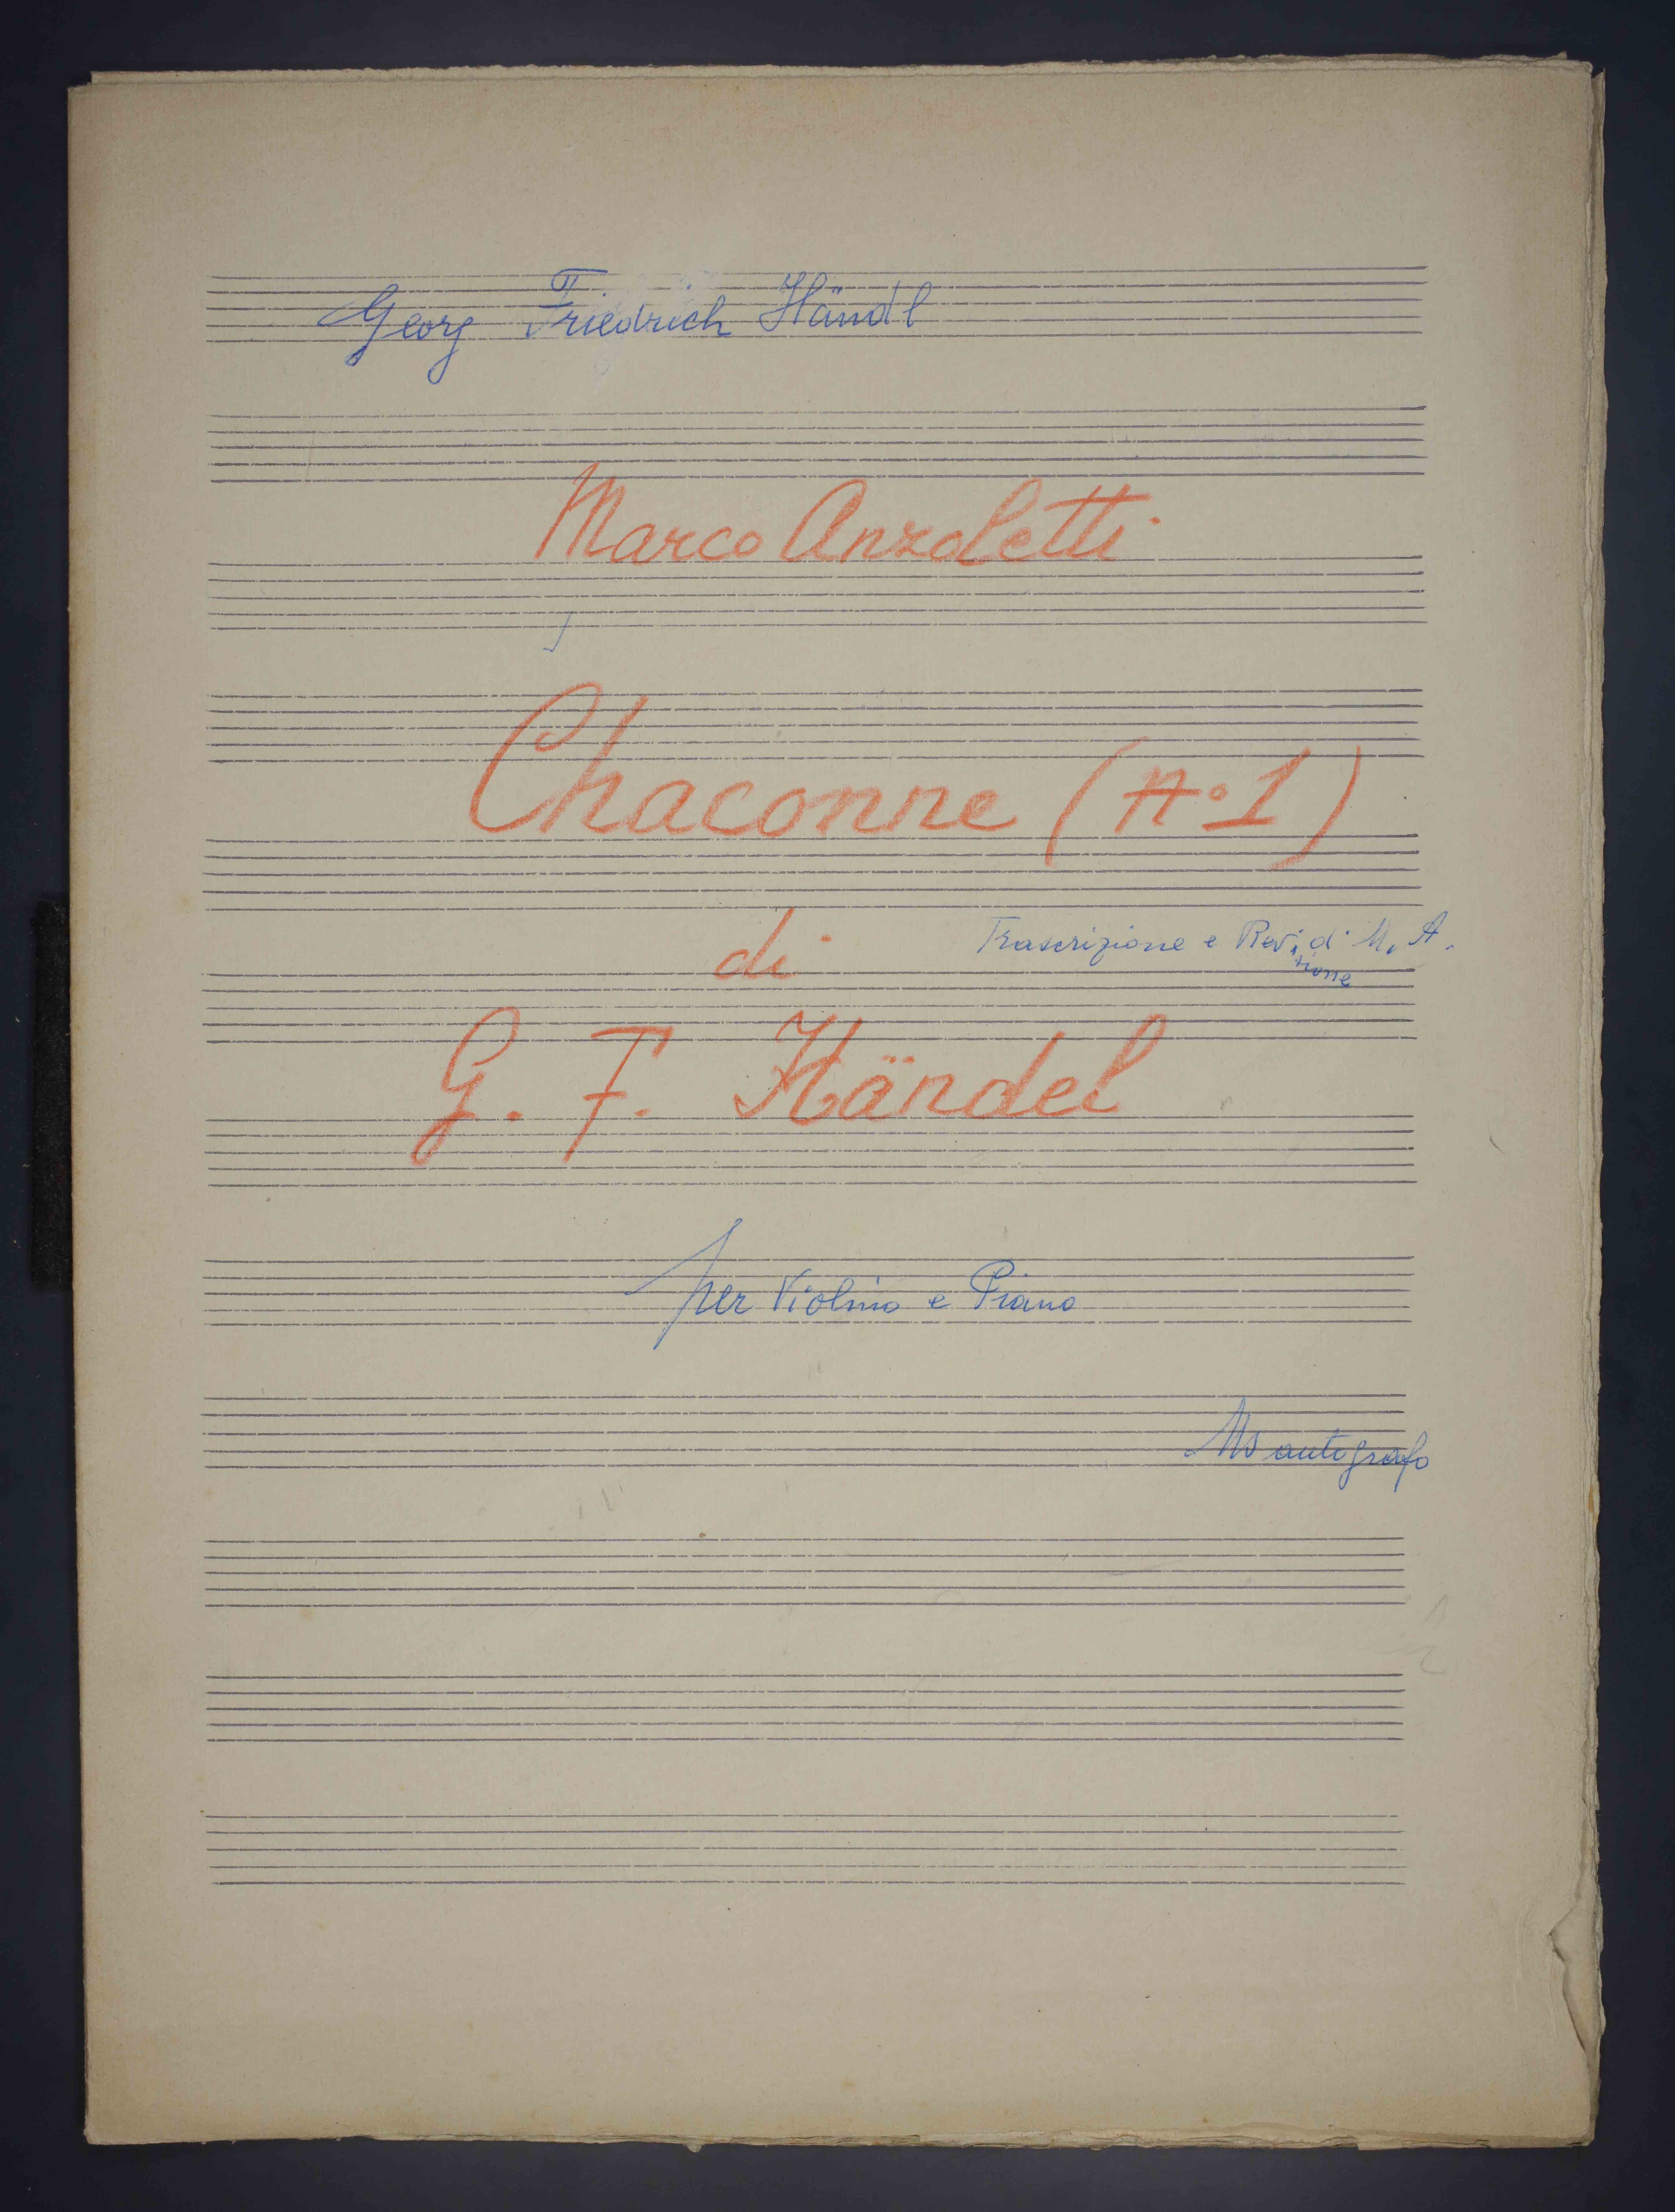 Georg Friedrich Händl
Marco Anzoletti
Chaconne (n° 1)
di
Trascrizione e Revisione di M. A.
G. F. Händel
per Violino e Piano
Ms autografo